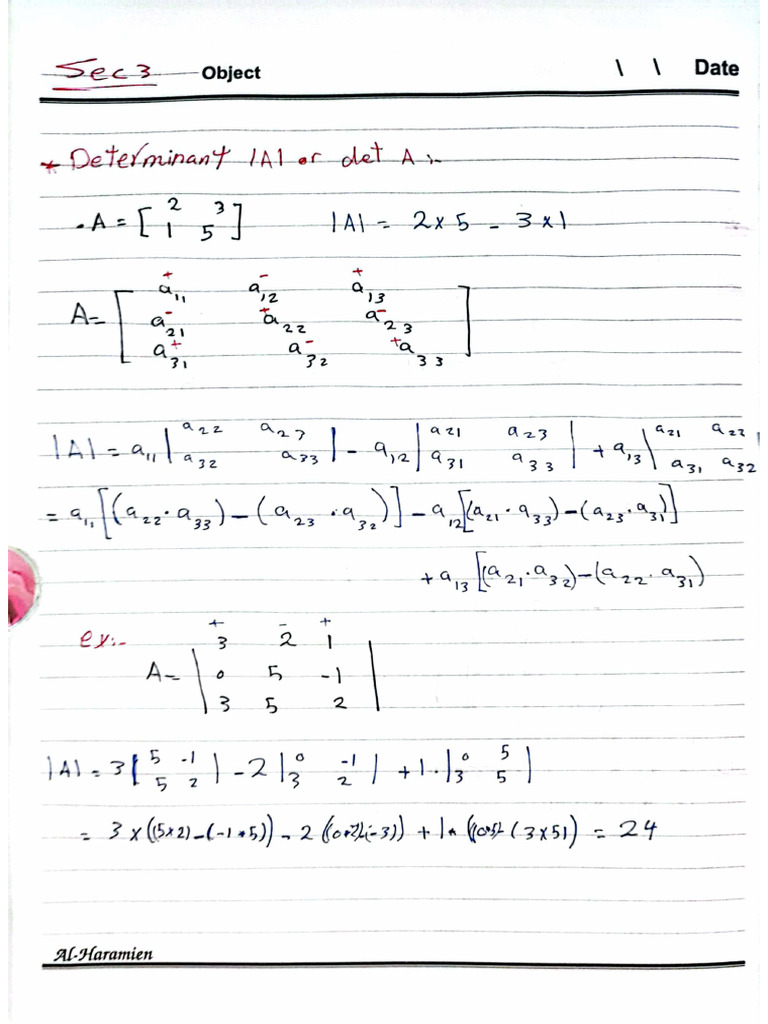 Sec 3 Object \ \ Date
* Determinant |A| or det A :-
. A = [ 2 3     |A| = 2 x 5 - 3 x 1
1 5 ]
+ - +
a11 a12 a13
A = [ - a21 + a22 - a23 ]
+ a31 - a32 + a33
|A| = a11 | a22 a23 | - a12 | a21 a23 | + a13 | a21 a22
a32 a33     a31 a33     a31 a32
= a11 [(a22 . a33) - (a23 . a32)] - a12 [(a21 . a33) - (a23 . a31)]
+ a13 [(a21 . a32) - (a22 . a31)
+ - +
ex:- 3 2 1
A = | 0 5 -1 |
3 5 2
|A| = 3 | 5 -1 | - 2 | 0 -1 | + 1 . | 0 5 |
5 2     3 2     3 5
= 3 x ((5x2) - (-1*5)) - 2 ((0*2)-(-3)) + 1* ((0*5)- (3 x 5)) = 24
Al-Haramien